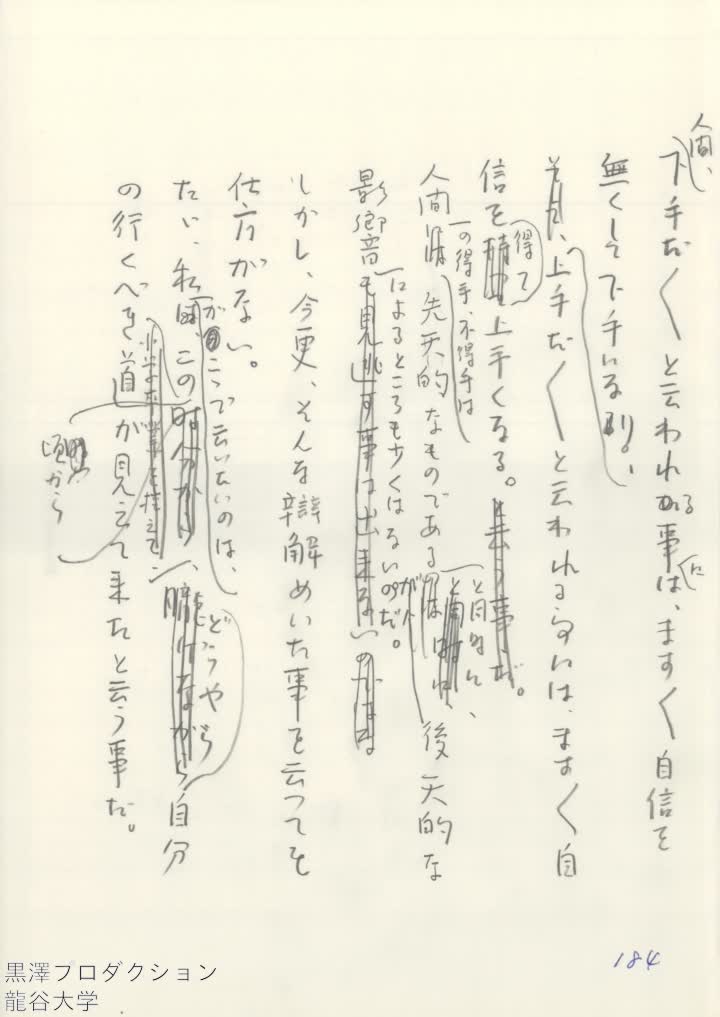 人間、
下手だ〱と云われる事は、ます〱自信を
に
無くして下手になり、
上手だ〱と云われる
は、ます〱自
信を
得て
上手くなる。
人間
の得手、不得手は
先天的なものである
と同時に、
が
後天的な
影響
によるところも少くはないのだ。
も見逃す事は出来ない
しかし、今更、そんな辯解めいた事を云つても
仕方がない。
たゞ、私
がこゝで云いたいのは、
この
頃から
、
どうやら
自分
の行くべき道が見えて来たと云う事だ。
184
黒澤プロダクション
龍谷大学